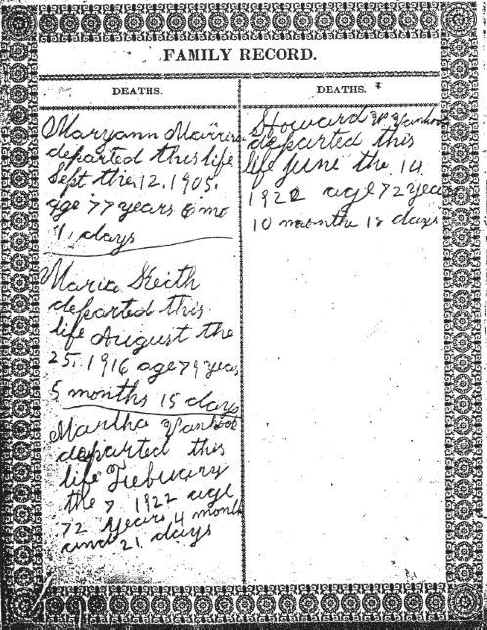 FAMILY RECORD.
DEATHS.
Maryann
departed this life
Sept the 12. 1905.
age 77 years 6 mo
11 days
Maria Keith
departed this
life August the
25. 1916 age 79 years
5 months 15 days
Martha Vanhook
departed this
life Feebuary
the 7 1922 age
72 years 4 month
and 21 days
DEATHS.
Howard Vanhook
departed this
life June the 14
1922 age 72 years
10 months 18 days